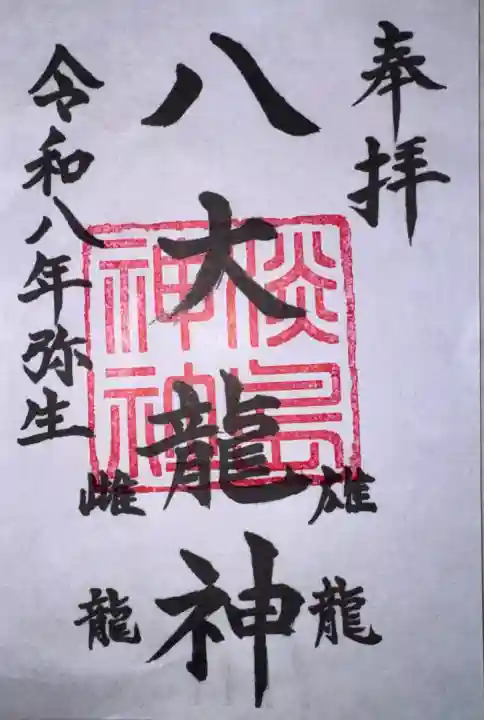 奉拝
八大龍神
雄龍
雌龍
淡島神社
令和八年弥生